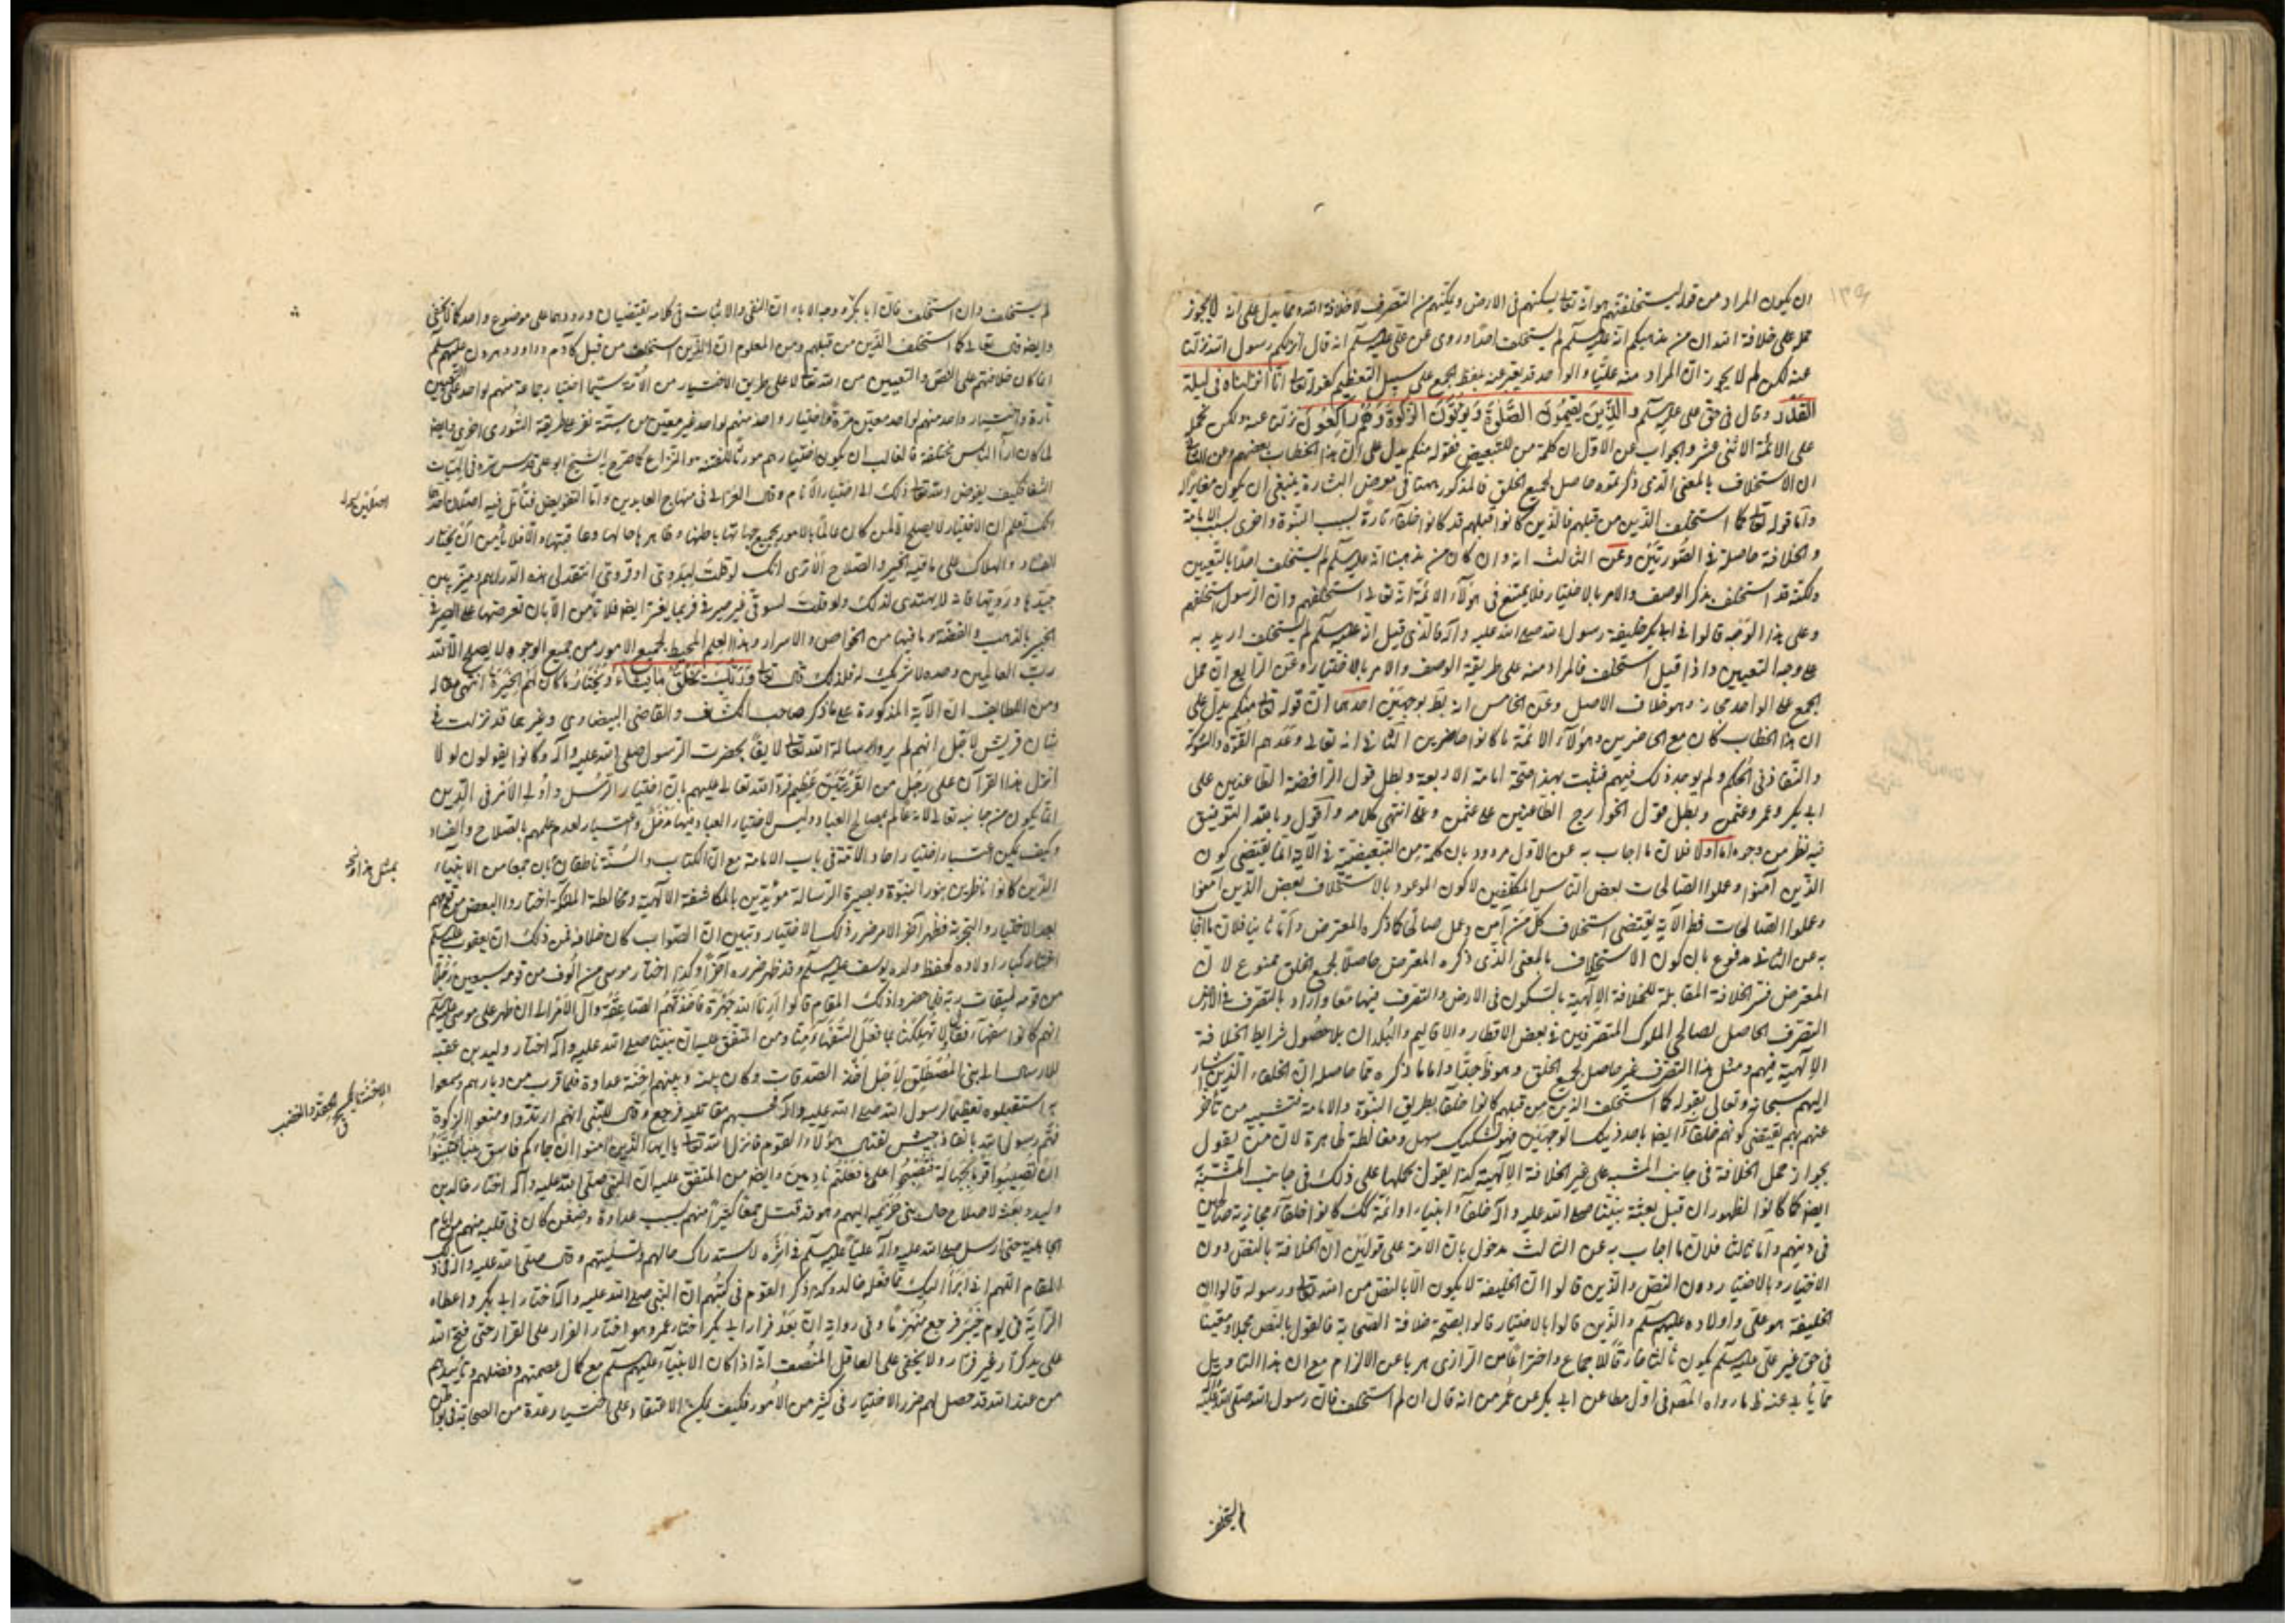 ان يكون المراد من قوله ليستخلفنهم هو انه تعالى يسكنهم في الارض ويمكنهم من التصرف لا خلافة الله ومما يدل على انه لا يجوز
حمله على خلافة الله ان من مذهبكم انه عليه السلم لم يستخلف احدا وروى عن علي عليه السلم انه قال اترككم رسول الله نزلنا
عنه لكن لم لا يجوز ان المراد منه عليا والواحد قد يعبر عنه بلفظ الجمع على سبيل التعظيم كقوله تعالى انا انزلناه في ليلة
القدر وقال في حق علي عليه السلم والذين يقيمون الصلوة ويؤتون الزكوة وهم راكعون نزلنا عنه ولكن نحمله
على الائمة الاثنى عشر والجواب عن الاول ان كلمة من للتبعيض فقوله منكم يدل على ان هذا الخطاب بعضهم وعن الثاني
ان الاستخلاف بالمعنى الذي ذكرتموه حاصل لجميع الخلق فالمذكور ههنا في معرض البشارة ينبغي ان يكون مغايرا له
واما قوله تعالى كما استخلف الذين من قبلهم فالذين كانوا قبلهم قد كانوا خلفاء تارة بسبب النبوة واخرى بسبب الامامة
والخلافة حاصلة في الصورتين وعن الثالث انه وان كان من مذهبنا انه عليه السلم لم يستخلف احدا بالتعيين
ولكنه قد استخلف بذكر الوصف والامر بالاختيار فلا يمتنع في هؤلاء الائمة انه تعالى استخلفهم وان الرسول استخلفهم
وعلى هذا الوجه قالوا في ابي بكر خليفة رسول الله صلى الله عليه وآله فالذي قيل انه عليه السلم لم يستخلف اريد به
على وجه التعيين واذا قيل استخلف فالمراد منه على طريقة الوصف والامر بالاختيار وعن الرابع ان حمل
الجمع على الواحد مجاز وهو خلاف الاصل وعن الخامس انه بط بوجهين احدهما ان قوله تعالى منكم يدل على
ان هذا الخطاب كان مع الحاضرين وهؤلاء الائمة ما كانوا حاضرين الثاني انه تعالى وعدهم القوة والشوكة
والنفاذ في الحكم ولم يوجد ذلك فيهم فثبت بهذا صحة امامة الاربعة وبطل قول الرافضة الطاعنين على
ابي بكر وعمر وعثمن وبطل قول الخوارج الطاعنين على عثمن وعلي انتهى كلامه واقول وبالله التوفيق
فيه نظر من وجوه اما اولا فلان ما اجاب به عن الاول مردود بان كلمة من التبعيضية في الآية انما يقتضي كون
الذين آمنوا وعملوا الصالحات بعض الناس المكلفين لا كون الموعود بالاستخلاف بعض الذين آمنوا
وعملوا الصالحات فظ الآية يقتضي استخلاف كل من آمن وعمل صالحا كما ذكره المعترض واما ثانيا فلان ما اجاب
به عن الثاني مدفوع بان كون الاستخلاف بالمعنى الذي ذكره المعترض حاصلا لجميع الخلق ممنوع لان
المعترض فسر الخلافة المقابلة للخلافة الالهية بالسكون في الارض والتصرف فيها معا واراد بالتصرف في الارض
التصرف الحاصل لصالحي الملوك المتصرفين في بعض الاقطار والاقاليم والبلدان بلا حصول شرايط الخلافة
الالهية فيهم ومثل هذا التصرف غير حاصل لجميع الخلق وهو ظ جدا واما ما ذكره مما حاصله ان الخلفاء الذين اشار
اليهم سبحانه وتعالى بقوله كما استخلف الذين من قبلهم كانوا خلفاء بطريق النبوة والامامة فتشبيه من تأخر
عنهم بهم يقتضي كونهم خلفاء ايضا باحد ذينك الوجهين فهو تشكيك سهل ومغالطة ظاهرة لان من يقول
بجواز حمل الخلافة في جانب المشبه على غير الخلافة الالهية كذا يقول بحملها على ذلك في جانب المشبه به
ايضا كما كانوا لظهور ان قبل بعثة نبينا صلى الله عليه وآله خلفاء انبياء او ائمة كك كانوا خلفاء مجازية صالحين
في دينهم واما ثالثا فلان ما اجاب به عن الثالث مدخول بان الامة على قولين ان الخلافة بالنص دون
الاختيار وبالاختيار دون النص والذين قالوا ان الخليفة لا يكون الا بالنص من الله تعالى ورسوله قالوا ان
الخليفة هو علي واولاده عليهم السلم والذين قالوا بالاختيار قالوا بصحة خلافة الصحابة فالقول بالنص مجملا ومعينا
في حق غير علي عليه السلم يكون ثالثا خارقا للاجماع واختراعا من الرازي هربا عن الالزام مع ان هذا التاويل
مما يأبى عنه ظ ما رواه المصنف في اول مطاعن ابي بكر عن عمر من انه قال ان لم استخلف فان رسول الله صلى الله عليه
لم يستخلف وان استخلف فان ابا بكر ووجه الاباء ان النفي والاثبات في كلامه يقتضيان ورودهما على موضوع واحد كما لا يخفى
وايضا قال تعالى كما استخلف الذين من قبلهم ومن المعلوم ان الذين استخلف من قبل كآدم وداود وهرون عليهم السلم
انما كان خلافتهم على النص والتعيين من الله تعالى لا على طريق الاختيار من الامة سيما اختيار جماعة منهم لواحد على التعيين
تارة واختيار واحد منهم لواحد معين مرة واختيار واحد منهم لواحد غير معين من ستة نفر على طريقة الشورى اخرى وايضا
لما كان آراء الناس مختلفة فالغالب ان يكون اختيارهم مورثا للفتنة والنزاع كما صرح به الشيخ ابو علي قدس سره في الهيات
الشفا فكيف يفوض الله تعالى ذلك الى اختيار الانام وقال الغزالي في منهاج العابدين واما التفويض فتأمل فيه اصلان احدهما
انك تعلم ان الاختيار لا يصلح الا لمن كان عالما بالامور بجميع جهاتها باطنها وظاهرها حالها وعاقبتها والا فلا يأمن ان يختار
الفساد والهلاك على ما فيه الخير والصلاح الا ترى انك لو قلت لبدوي او قروي انتقد لي هذه الدراهم وميز بين
جيدها ورديها فانه لا يهتدي لذلك ولو قلت لسوقي غير صيرفي فربما يعسر ايضا فلا تأمن الا بان تعرضها على الصيرفي
الخبير بالذهب والفضة وما فيها من الخواص والاسرار وهذا العلم المحيط لجميع الامور من جميع الوجوه لا يصلح الا لله
رب العالمين وحده لا شريك له فلذلك قال تعالى وربك يخلق ما يشاء ويختار ما كان لهم الخيرة انتهى مقاله
ومن اللطايف ان الآية المذكورة على ما ذكر صاحب الكشاف والقاضي البيضاوي وغيرهما قد نزلت في
شان قريش لاجل انهم لم يروا رسالة الله تعالى لايقا بحضرت الرسول صلى الله عليه وآله وكانوا يقولون لولا
انزل هذا القرآن على رجل من القريتين عظيم فرد الله تعالى عليهم بان اختيار الرسل واولي الامر في الدين
انما يكون من جانبه تعالى لانه عالم بمصالح العباد وليس لاختيار العباد فيها مدخل واعتبار لعدم علمهم بالصلاح والفساد
وكيف يمكن اعتبار اختيار احاد الامة في باب الامامة مع ان الكتاب والسنة ناطقان بان جمعا من الانبياء
الذين كانوا ناظرين بنور النبوة وبصيرة الرسالة مؤيدين بالمكاشفة الالهية ومخالطة الملائكة اختاروا البعض من قومهم
بعد الاختبار والتجربة فظهر آخر الامر ضرر ذلك الاختيار وتبين ان الصواب كان خلافه فمن ذلك ان يعقوب عليه السلم
اختار كبار اولاده لحفظ ولده يوسف عليه السلم وقد ظهر ضرره آخرا وكذا اختار موسى من الوف من قومه سبعين رجلا
من قومه لميقات ربه فلما حضروا ذلك المقام قالوا ارنا الله جهرة فاخذتهم الصاعقة وآل الامر الى ان ظهر على موسى عليه السلم
انهم كانوا سفهاء فقال اتهلكنا بما فعل السفهاء منا ومن المتفق عليه ان نبينا صلى الله عليه وآله اختار وليد بن عقبة
للارسال الى بني المصطلق لاجل اخذ الصدقات وكان بينه وبينهم احنة عداوة فلما قرب من ديارهم وسمعوا
به استقبلوه تعظيما لرسول الله صلى الله عليه وآله فحسبهم مقاتليه فرجع وقال للنبي انهم ارتدوا ومنعوا الزكوة
فهم رسول الله بانفاذ جيش لقتال هؤلاء القوم فانزل الله تعالى يا ايها الذين آمنوا ان جاءكم فاسق بنبأ فتبينوا
ان تصيبوا قوما بجهالة فتصبحوا على ما فعلتم نادمين وايضا من المتفق عليه ان النبي صلى الله عليه وآله اختار خالد بن
وليد وبعثه لاصلاح حال بني خزيمه اليهم وهو قد قتل جمعا كثيرا منهم بسبب عداوة وضغن كان في قلبه منهم من ايام
الجاهلية حتى ارسل صلى الله عليه وآله عليا عليه السلم في اثره لاستدراك حالهم وتسليتهم وقال صلى الله عليه وآله في ذلك
المقام اللهم اني ابرأ اليك مما فعله خالد وكذا ذكر القوم في كتبهم ان النبي صلى الله عليه وآله اختار ابي بكر واعطاه
الراية في يوم خيبر فرجع منهزما وفي رواية ان بعد فرار ابي بكر اختار عمر وهو اختار الفرار على القرار حتى فتح الله
على يد كرار غير فرار ولا يخفى على العاقل المنصف انه اذا كان الانبياء عليهم السلم مع كمال عصمتهم وفضلهم وتأييدهم
من عند الله قد حصل لهم ضرر الاختيار في كثير من الامور فكيف يمكن الاعتماد على اختيار عدة من الصحابة في
بمثل هذا